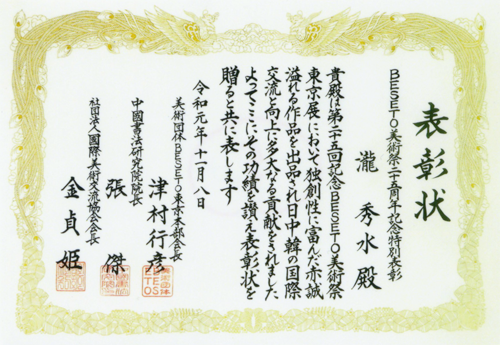 表彰状
BESETO美術祭二十五周年記念特別表彰
瀧 秀水 殿
貴殿は第二十五回記念BESETO美術祭
東京展において独創性に富んだ赤誠
溢れる作品を出品され日中韓の国際
交流と向上に多大なる貢献をされました
よってここにその功績を讃え表彰状を
贈ると共に表します
令和元年十一月八日
美術団体BESETO東京本部会長
津村行彦
中國書法研究院院長
張 傑
社団法人國際美術交流協会会長
金貞姫